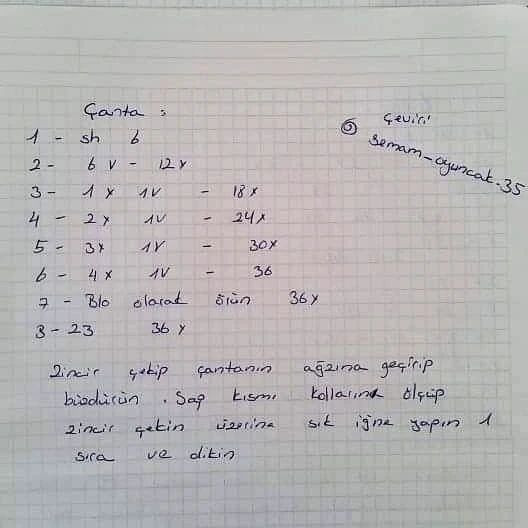 Çanta :
1 - sh 6
2 - 6 v - 12x
3 - 1 x 1v - 18x
4 - 2x 1v - 24x
5 - 3x 1v - 30x
6 - 4x 1v - 36
7 - Blo olarak örün 36x
8 - 23 36x
Zincir çekip çantanın ağzına geçirip
büzdürün . Sap kısmı kollarına ölçüp
zincir çekin üzerine sık iğne yapın 1
sıra ve dikin
Çeviri
@semam-oyuncak.35